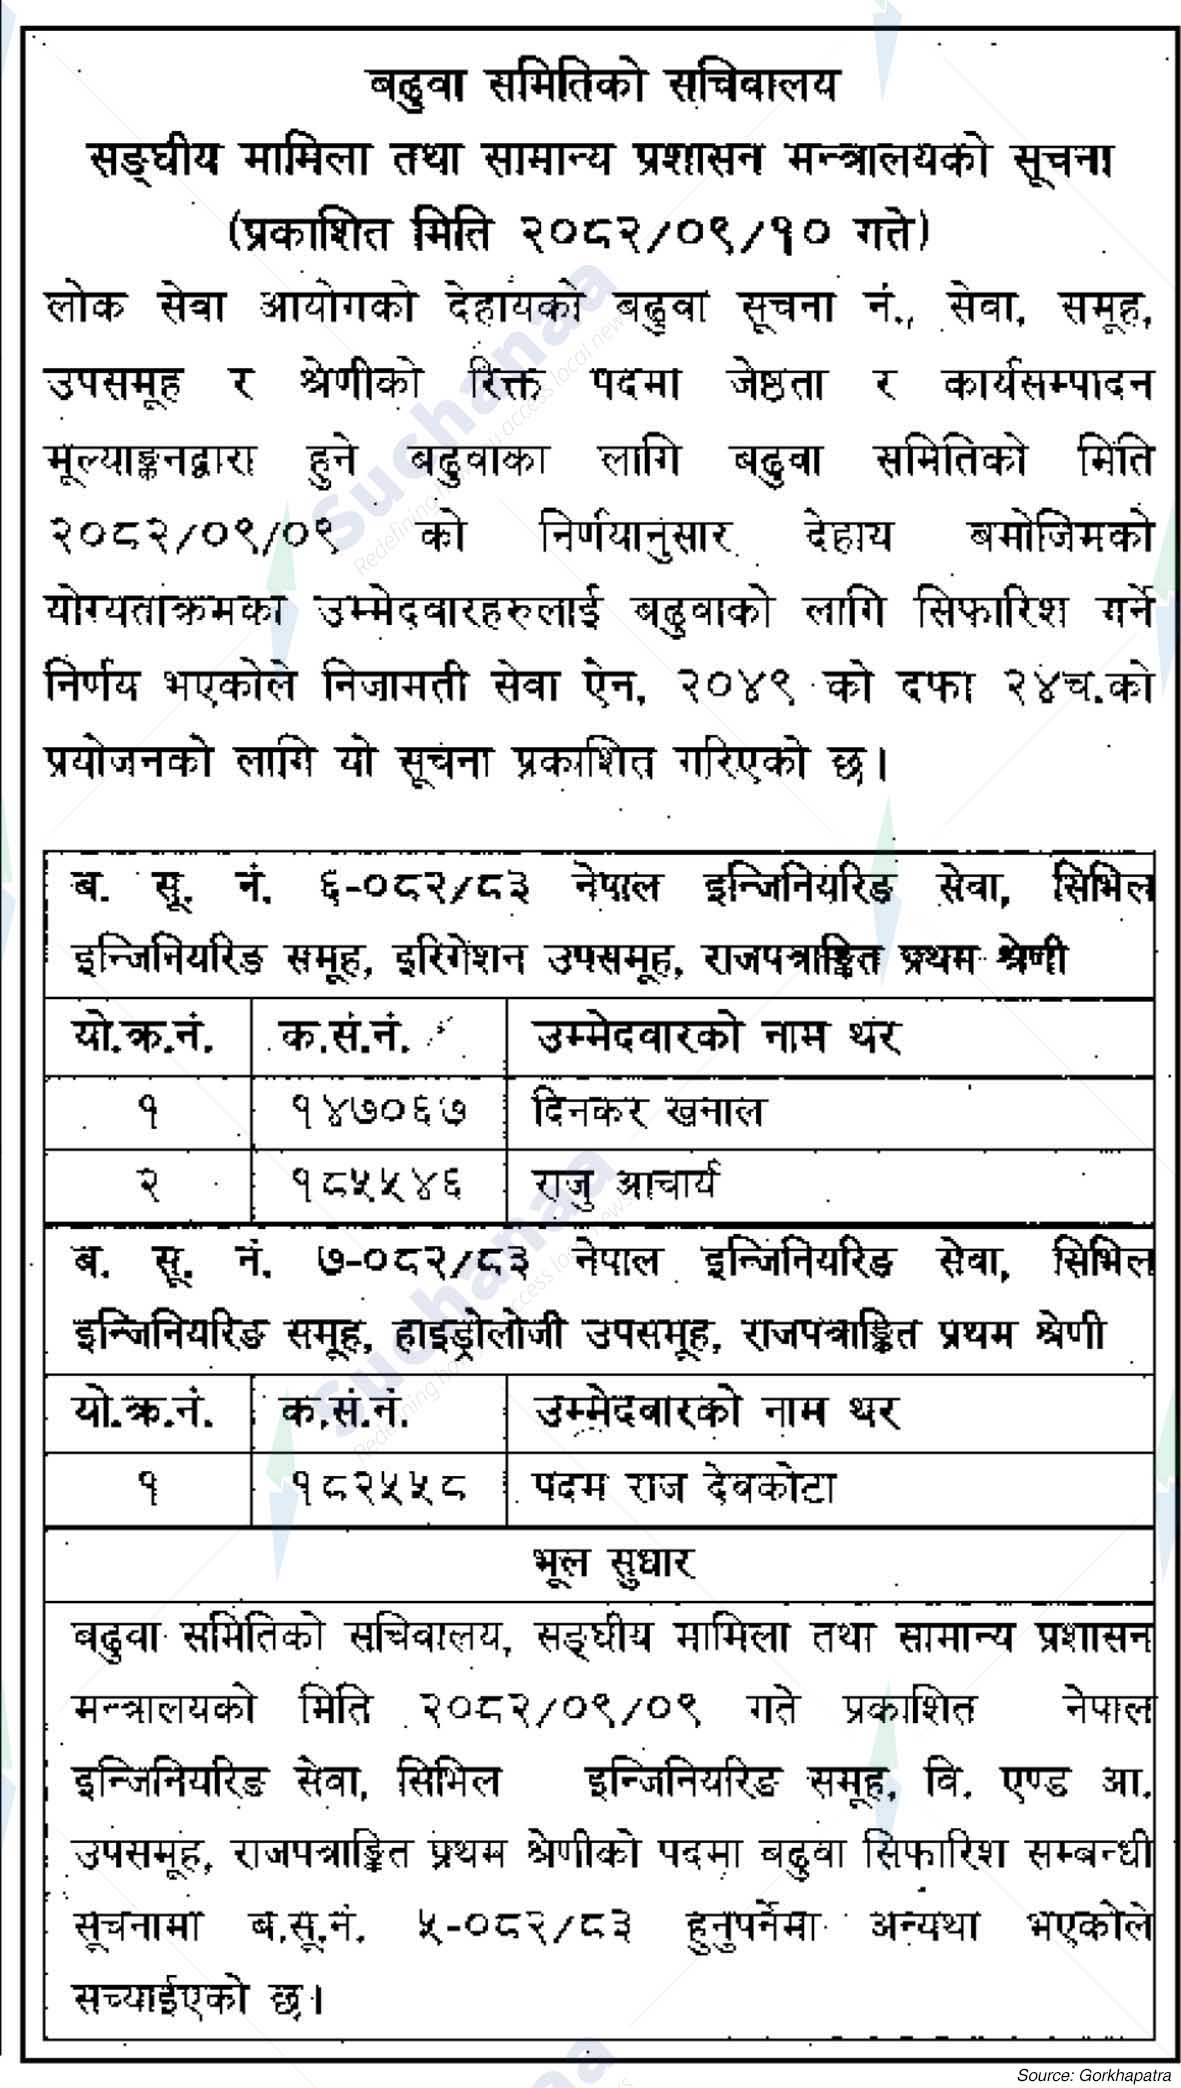 बढुवा समितिको सचिवालय
सङ्घीय मामिला तथा सामान्य प्रशासन मन्त्रालयको सूचना
(प्रकाशित मिति २०८२/०९/१० गते)
लोक सेवा आयोगको देहायको बढुवा सूचना नं., सेवा, समूह,
उपसमूह र श्रेणीको रिक्त पदमा जेष्ठता र कार्यसम्पादन
मूल्याङ्कनद्वारा हुने बढुवाका लागि बढुवा समितिको मिति
२०८२/०९/०९ को निर्णयानुसार देहाय बमोजिमको
योग्यताक्रमका उम्मेदवारहरुलाई बढुवाको लागि सिफारिश गर्ने
निर्णय भएकोले निजामती सेवा ऐन, २०४९ को दफा २४च.को
प्रयोजनको लागि यो सूचना प्रकाशित गरिएको छ।
ब. सू. नं. ६-०८२/८३ नेपाल इन्जिनियरिङ सेवा, सिभिल
इन्जिनियरिङ समूह, इरिगेशन उपसमूह, राजपत्राङ्कित प्रथम श्रेणी
यो.क्र.नं. क.सं.नं. उम्मेदवारको नाम थर
१ १४७०६७ दिनकर खनाल
२ १८५५४६ राजु आचार्य
ब. सू. नं. ७-०८२/८३ नेपाल इन्जिनियरिङ सेवा, सिभिल
इन्जिनियरिङ समूह, हाइड्रोलोजी उपसमूह, राजपत्राङ्कित प्रथम श्रेणी
यो.क्र.नं. क.सं.नं. उम्मेदवारको नाम थर
१ १८२५५८ पदम राज देवकोटा
भूल सुधार
बढुवा समितिको सचिवालय, सङ्घीय मामिला तथा सामान्य प्रशासन
मन्त्रालयको मिति २०८२/०९/०९ गते प्रकाशित नेपाल
इन्जिनियरिङ सेवा, सिभिल इन्जिनियरिङ समूह, वि. एण्ड आ.
उपसमूह, राजपत्राङ्कित प्रथम श्रेणीको पदमा बढुवा सिफारिश सम्बन्धी
सूचनामा ब.सू.नं. ५-०८२/८३ हुनुपर्नेमा अन्यथा भएकोले
सच्याईएको छ।
Source: Gorkhapatra